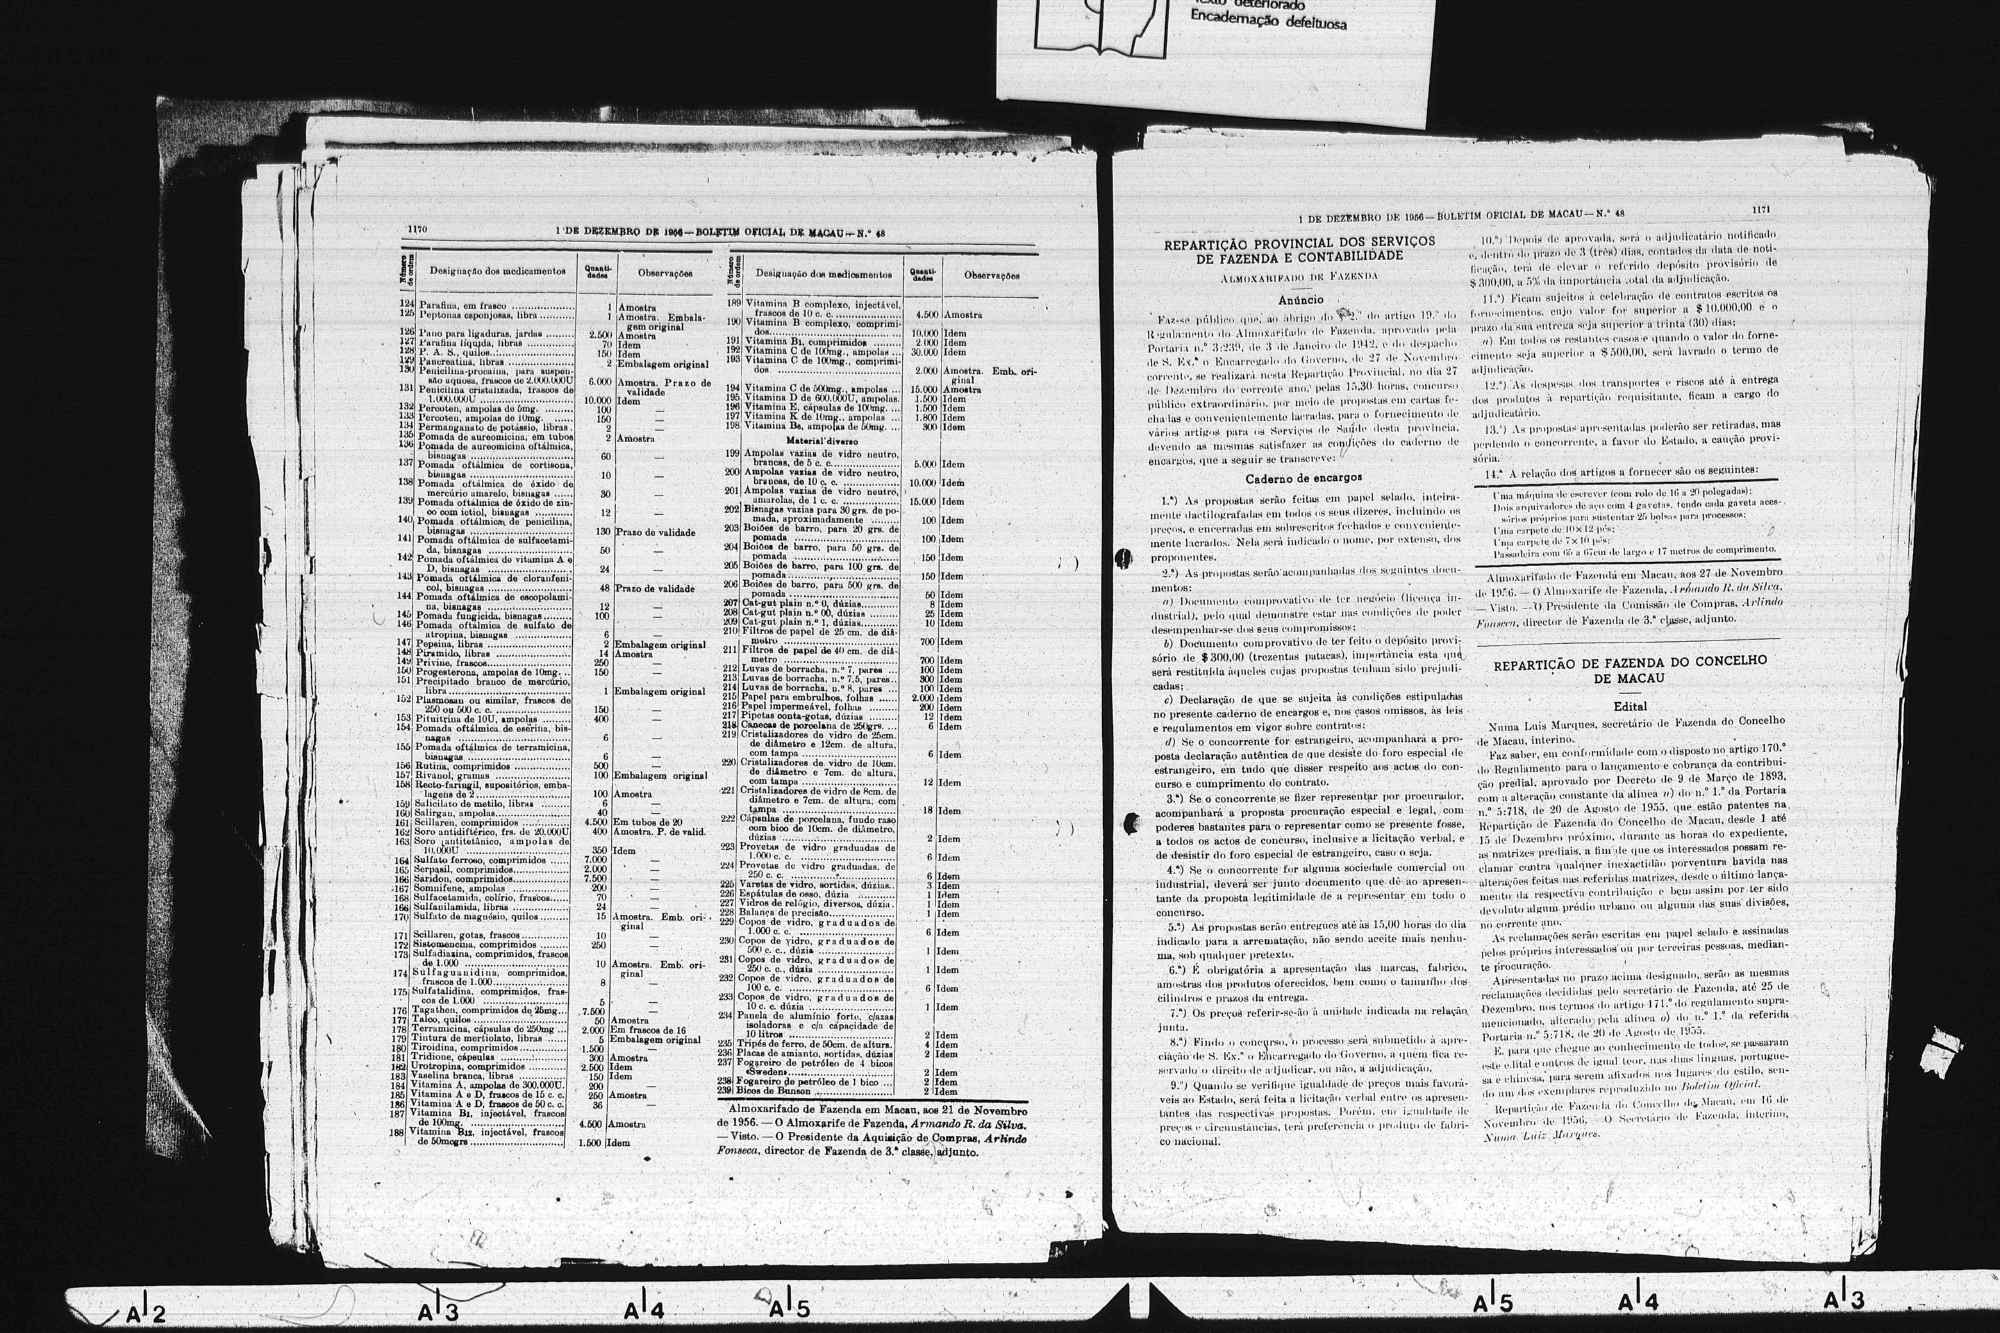 Texto deteriorado
Encadernação defeituosa
1170 1 DE DEZEMBRO DE 1956—BOLETIM OFICIAL DE MACAU—N.º 48
Número de ordem Designação dos medicamentos Quantidades Observações
124 Parafina, em frasco 1 Amostra
125 Peptonas esponjosas, libra 1 Amostra. Embala-
gem original
126 Pano para ligaduras, jardas 2.500 Amostra
127 Parafina líquida, libras 70 Idem
128 P. A. S., quilos 150 Idem
129 Pancreatina, libras 2 Embalagem original
130 Penicilina-procaína, para suspen-
são aquosa, frascos de 2.000.000U 6.000 Amostra. Prazo de
validade
131 Penicilina cristalizada, frascos de
1.000.000U 10.000 Idem
132 Percoten, ampolas de 5mg. 100 —
133 Percoten, ampolas de 10mg. 150 —
134 Permanganato de potássio, libras 2 —
135 Pomada de aureomicina, em tubos 2 Amostra
136 Pomada de aureomicina oftálmica,
bisnagas 60 —
137 Pomada oftálmica de cortisona,
bisnagas 10 —
138 Pomada oftálmica de óxido de
mercúrio amarelo, bisnagas 30 —
139 Pomada oftálmica de óxido de zin-
co com ictiol, bisnagas 12 —
140 Pomada oftálmica de penicilina,
bisnagas 130 Prazo de validade
141 Pomada oftálmica de sulfacetami-
da, bisnagas 50 —
142 Pomada oftálmica de vitamina A e
D, bisnagas 24 —
143 Pomada oftálmica de cloranfeni-
col, bisnagas 48 Prazo de validade
144 Pomada oftálmica de escopolami-
na, bisnagas 12 —
145 Pomada fungicida, bisnagas 100 —
146 Pomada oftálmica de sulfato de
atropina, bisnagas 6 —
147 Pepsina, libras 2 Embalagem original
148 Piramido, libras 14 Amostra
149 Privine, frascos 250 —
150 Progesterona, ampolas de 10mg. 150 —
151 Precipitado branco de mercúrio,
libra 1 Embalagem original
152 Plasmosan ou similar, frascos de
250 ou 500 c. c. 150 —
153 Pituitrina de 10U, ampolas 400 —
154 Pomada oftálmica de eserina, bis-
nagas 6 —
155 Pomada oftálmica de terramicina,
bisnagas 6 —
156 Rutina, comprimidos 500 —
157 Rivanol, gramas 100 Embalagem original
158 Recto-faringil, supositórios, emba-
lagens de 2 100 Amostra
159 Salicilato de metilo, libras 6 —
160 Salirgan, ampolas 40 —
161 Scillaren, comprimidos 4.500 Em tubos de 20
162 Soro antidiftérico, frs. de 20.000U 400 Amostra. P. de valid.
163 Soro antitetânico, ampolas de
10.000U 350 Idem
164 Sulfato ferroso, comprimidos 7.000 —
165 Serpasil, comprimidos 2.000 —
166 Saridon, comprimidos 7.500 —
167 Somnifene, ampolas 200 —
168 Sulfacetamida, colírio, frascos 70 —
166 Sulfanilamida, libras 24 —
170 Sulfato de magnésio, quilos 15 Amostra. Emb. ori-
ginal
171 Scillaren, gotas, frascos 10 —
172 Sistomencina, comprimidos 250 —
173 Sulfadiazina, comprimidos, frascos
de 1.000 10 Amostra. Emb. ori-
ginal
174 Sulfaguanidina, comprimidos,
frascos de 1.000 8 —
175 Sulfatalidina, comprimidos, fras-
cos de 1.000 5 —
176 Tagathen, comprimidos de 25mg 7.500 —
177 Talco, quilos 50 Amostra
178 Terramicina, cápsulas de 250mg 2.000 Em frascos de 16
179 Tintura de mertiolato, libras 5 Embalagem original
180 Tiroidina, comprimidos 1.500 —
181 Tridione, cápsulas 300 Amostra
182 Urotropina, comprimidos 2.500 Idem
183 Vaselina branca, libras 150 Idem
184 Vitamina A, ampolas de 300.000U. 200 —
185 Vitamina A e D, frascos de 15 c. c. 250 Amostra
186 Vitamina A e D, frascos de 50 c. c. 36 —
187 Vitamina B1, injectável, frascos
de 100mg. 4.500 Amostra
188 Vitamina B12, injectável, frascos
de 50mcgrs 1.500 Idem
Número de ordem Designação dos medicamentos Quantidades Observações
189 Vitamina B complexo, injectável,
frascos de 10 c. c. 4.500 Amostra
190 Vitamina B complexo, comprimi-
dos 10.000 Idem
191 Vitamina B1, comprimidos 2.000 Idem
192 Vitamina C de 100mg., ampolas 30.000 Idem
193 Vitamina C de 100mg., comprimi-
dos 2.000 Amostra. Emb. ori-
ginal
194 Vitamina C de 500mg., ampolas 15.000 Amostra
195 Vitamina D de 600.000U, ampolas. 1.500 Idem
196 Vitamina E, cápsulas de 100mg. 1.500 Idem
197 Vitamina K de 10mg., ampolas 1.800 Idem
198 Vitamina B6, ampolas de 50mg. 300 Idem
Material diverso
199 Ampolas vazias de vidro neutro,
brancas, de 5 c. c. 5.000 Idem
200 Ampolas vazias de vidro neutro,
brancas, de 10 c. c. 10.000 Idem
201 Ampolas vazias de vidro neutro,
amarelas, de 1 c. c. 15.000 Idem
202 Bisnagas vazias para 30 grs. de po-
mada, aproximadamente 100 Idem
203 Boiões de barro, para 20 grs. de
pomada 100 Idem
204 Boiões de barro, para 50 grs. de
pomada 150 Idem
205 Boiões de barro, para 100 grs. de
pomada 150 Idem
206 Boiões de barro, para 500 grs. de
pomada 50 Idem
207 Cat-gut plain n.º 0, dúzias 8 Idem
208 Cat-gut plain n.º 00, dúzias 25 Idem
209 Cat-gut plain n.º 1, dúzias 10 Idem
210 Filtros de papel de 25 cm. de diâ-
metro 700 Idem
211 Filtros de papel de 40 cm. de diâ-
metro 700 Idem
212 Luvas de borracha, n.º 7, pares 100 Idem
213 Luvas de borracha, n.º 7.5, pares 300 Idem
214 Luvas de borracha, n.º 8, pares 100 Idem
215 Papel para embrulhos, folhas 2.000 Idem
216 Papel impermeável, folhas 200 Idem
217 Pipetas conta-gotas, dúzias 12 Idem
218 Canecas de porcelana de 250grs. 6 Idem
219 Cristalizadores de vidro de 25cm.
de diâmetro e 12cm. de altura,
com tampa 6 Idem
220 Cristalizadores de vidro de 10cm.
de diâmetro e 7cm. de altura,
com tampa 12 Idem
221 Cristalizadores de vidro de 8cm. de
diâmetro e 7cm. de altura, com
tampa 18 Idem
222 Cápsulas de porcelana, fundo raso
com bico de 10cm. de diâmetro,
dúzias 2 Idem
223 Provetas de vidro graduadas de
1.000 c. c. 6 Idem
224 Provetas de vidro graduadas, de
250 c. c. 6 Idem
225 Varetas de vidro, sortidas, dúzias 3 Idem
226 Espátulas de osso, dúzia 1 Idem
227 Vidros de relógio, diversos, dúzia 1 Idem
228 Balança de precisão 1 Idem
229 Copos de vidro, graduados de
1.000 c. c. 6 Idem
230 Copos de vidro, graduados de
500 c. c., dúzia 1 Idem
231 Copos de vidro, graduados de
250 c. c., dúzia 1 Idem
232 Copos de vidro, graduados de
100 c. c. 6 Idem
233 Copos de vidro, graduados de
10 c. c. dúzia 1 Idem
234 Panela de alumínio forte, c/azas
isoladoras e c/a capacidade de
10 litros 2 Idem
235 Tripés de ferro, de 50cm. de altura. 4 Idem
236 Placas de amianto, sortidas, dúzias 2 Idem
237 Fogareiro de petróleo de 4 bicos
«Sweden» 2 Idem
238 Fogareiro de petróleo de 1 bico 2 Idem
239 Bicos de Bunson 2 Idem
Almoxarifado de Fazenda em Macau, aos 21 de Novembro
de 1956. — O Almoxarife de Fazenda, Armando R. da Silva.
— Visto. — O Presidente da Aquisição de Compras, Arlindo
Fonseca, director de Fazenda de 3.ª classe, adjunto.
1 DE DEZEMBRO DE 1956—BOLETIM OFICIAL DE MACAU—N.º 48 1171
REPARTIÇÃO PROVINCIAL DOS SERVIÇOS
DE FAZENDA E CONTABILIDADE
ALMOXARIFADO DE FAZENDA
Anúncio
Faz-se público que, ao abrigo do § 2.º do artigo 19.º do
Regulamento do Almoxarifado de Fazenda, aprovado pela
Portaria n.º 3:239, de 3 de Janeiro de 1942, e do despacho
de S. Ex.ª o Encarregado do Governo, de 27 de Novembro
corrente, se realizará nesta Repartição Provincial, no dia 27
de Dezembro do corrente ano, pelas 15,30 horas, concurso
público extraordinário, por meio de propostas em cartas fe-
chadas e convenientemente lacradas, para o fornecimento de
vários artigos para os Serviços de Saúde desta província,
devendo as mesmas satisfazer as condições do caderno de
encargos, que a seguir se transcreve:
Caderno de encargos
1.ª) As propostas serão feitas em papel selado, inteira-
mente dactilografadas em todos os seus dizeres, incluindo os
preços, e encerradas em sobrescritos fechados e conveniente-
mente lacrados. Nela será indicado o nome, por extenso, dos
proponentes.
2.ª) As propostas serão acompanhadas dos seguintes docu-
mentos:
a) Documento comprovativo de ter negócio (licença in-
dustrial), pelo qual demonstre estar nas condições de poder
desempenhar-se dos seus compromissos;
b) Documento comprovativo de ter feito o depósito provi-
sório de $300,00 (trezentas patacas), importância esta que
será restituída àqueles cujas propostas tenham sido prejudi-
cadas;
c) Declaração de que se sujeita às condições estipuladas
no presente caderno de encargos e, nos casos omissos, às leis
e regulamentos em vigor sobre contratos;
d) Se o concorrente for estrangeiro, acompanhará a pro-
posta declaração autêntica de que desiste do foro especial de
estrangeiro, em tudo que disser respeito aos actos do con-
curso e cumprimento do contrato.
3.ª) Se o concorrente se fizer representar por procurador,
acompanhará a proposta procuração especial e legal, com
poderes bastantes para o representar como se presente fosse,
a todos os actos de concurso, inclusive a licitação verbal, e
de desistir do foro especial de estrangeiro, caso o seja.
4.ª) Se o concorrente for alguma sociedade comercial ou
industrial, deverá ser junto documento que dê ao apresen-
tante da proposta legitimidade de a representar em todo o
concurso.
5.ª) As propostas serão entregues até às 15,00 horas do dia
indicado para a arrematação, não sendo aceite mais nenhu-
ma, sob qualquer pretexto.
6.ª) É obrigatória a apresentação das marcas, fabrico,
amostras dos produtos oferecidos, bem como o tamanho dos
cilindros e prazos da entrega.
7.ª) Os preços referir-se-ão à unidade indicada na relação
junta.
8.ª) Findo o concurso, o processo será submetido à apre-
ciação de S. Ex.ª o Encarregado do Governo, a quem fica re-
servado o direito de adjudicar, ou não, a adjudicação.
9.ª) Quando se verifique igualdade de preços mais favorá-
veis ao Estado, será feita a licitação verbal entre os apresen-
tantes das respectivas propostas. Porém, em igualdade de
preços e circunstâncias, terá preferência o produto de fabri-
co nacional.
10.ª) Depois de aprovada, será o adjudicatário notificado
e, dentro do prazo de 3 (três) dias, contados da data de noti-
ficação, terá de elevar o referido depósito provisório de
$300,00, a 5% da importância total da adjudicação.
11.ª) Ficam sujeitos à celebração de contratos escritos os
fornecimentos, cujo valor for superior a $10.000,00 e o
prazo da sua entrega seja superior a trinta (30) dias;
a) Em todos os restantes casos e quando o valor do forne-
cimento seja superior a $500,00, será lavrado o termo de
adjudicação.
12.ª) As despesas dos transportes e riscos até à entrega
dos produtos à repartição requisitante, ficam a cargo do
adjudicatário.
13.ª) As propostas apresentadas poderão ser retiradas, mas
perdendo o concorrente, a favor do Estado, a caução provi-
sória.
14.ª A relação dos artigos a fornecer são os seguintes:
Uma máquina de escrever (com rolo de 16 a 20 polegadas);
Dois arquivadores de aço com 4 gavetas, tendo cada gaveta aces-
sórios próprios para sustentar 25 bolsas para processos;
Uma carpete de 10×12 pés;
Uma carpete de 7×10 pés;
Passadeira com 65 a 67cm de largo e 17 metros de comprimento.
Almoxarifado de Fazenda em Macau, aos 27 de Novembro
de 1956. — O Almoxarife de Fazenda, Armando R. da Silva.
— Visto. — O Presidente da Comissão de Compras, Arlindo
Fonseca, director de Fazenda de 3.ª classe, adjunto.
REPARTIÇÃO DE FAZENDA DO CONCELHO
DE MACAU
Edital
Numa Luís Marques, secretário de Fazenda do Concelho
de Macau, interino.
Faz saber, em conformidade com o disposto no artigo 170.º
do Regulamento para o lançamento e cobrança da contribui-
ção predial, aprovado por Decreto de 9 de Março de 1893,
com a alteração constante da alínea n) do n.º 1.º da Portaria
n.º 5:718, de 20 de Agosto de 1955, que estão patentes na
Repartição de Fazenda do Concelho de Macau, desde 1 até
15 de Dezembro próximo, durante as horas do expediente,
as matrizes prediais, a fim de que os interessados possam re-
clamar contra qualquer inexactidão porventura havida nas
alterações feitas nas referidas matrizes, desde o último lança-
mento da respectiva contribuição e bem assim por ter sido
devoluto algum prédio urbano ou alguma das suas divisões,
no corrente ano.
As reclamações serão escritas em papel selado e assinadas
pelos próprios interessados ou por terceiras pessoas, median-
te procuração.
Apresentadas no prazo acima designado, serão as mesmas
reclamações decididas pelo secretário de Fazenda, até 25 de
Dezembro, nos termos do artigo 171.º do regulamento supra-
mencionado, alterado pela alínea o) do n.º 1.º da referida
Portaria n.º 5:718, de 20 de Agosto de 1955.
E, para que chegue ao conhecimento de todos, se passaram
este edital e outros de igual teor, nas duas línguas, portugue-
sa e chinesa, para serem afixados nos lugares do estilo, sen-
do um dos exemplares reproduzido no Boletim Oficial.
Repartição de Fazenda do Concelho de Macau, em 16 de
Novembro de 1956. — O Secretário de Fazenda, interino,
Numa Luiz Marques.
A2 A3 A4 A5 A5 A4 A3